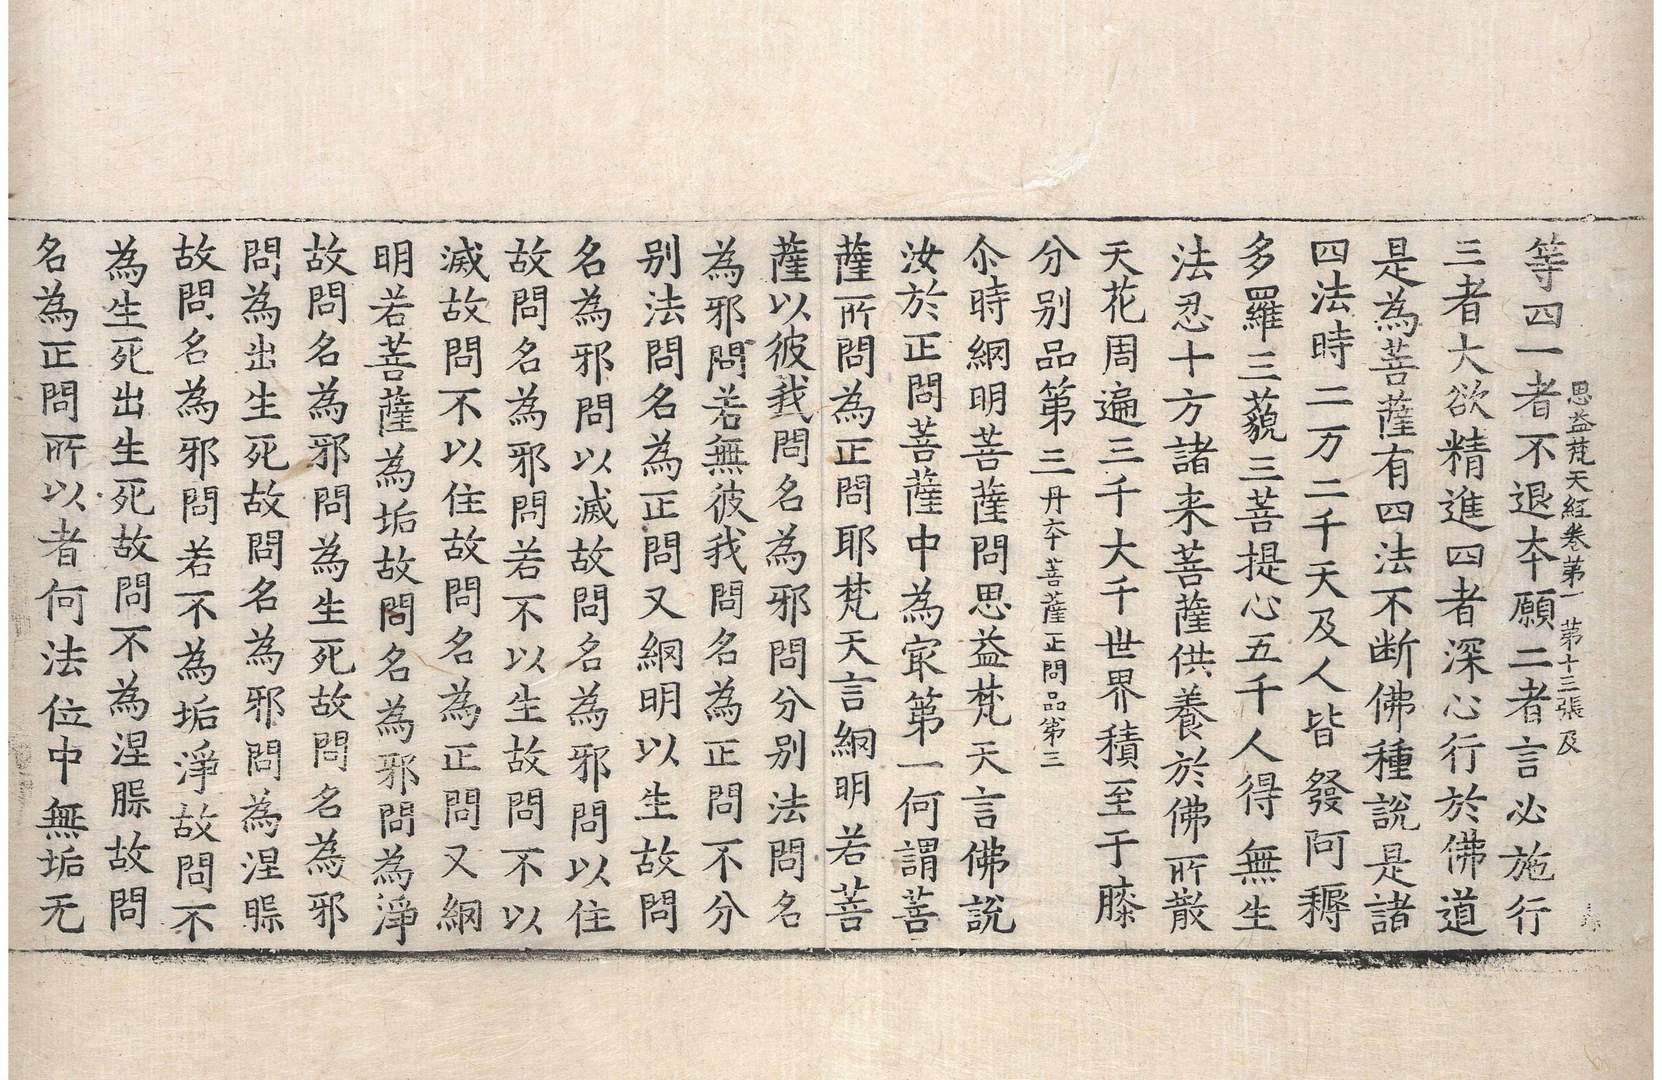 思益梵天經卷第一 第十三張 及
等四一者不退夲願二者言必施行
三者大欲精進四者深心行於佛道
是為菩薩有四法不断佛種說是諸
四法時二万二千天及人皆發阿耨
多羅三藐三菩提心五千人得無生
法忍十方諸来菩薩供養於佛所散
天花周遍三千大千世界積至于膝
分別品第三丹夲菩薩正問品第三
尒時網明菩薩問思益梵天言佛說
汝於正問菩薩中為㝡第一何謂菩
薩所問為正問耶梵天言網明若菩
薩以彼我問名為邪問分別法問名
為邪問若無彼我問名為正問不分
別法問名為正問又網明以生故問
名為邪問以滅故問名為邪問以住
故問名為邪問若不以生故問不以
滅故問不以住故問名為正問又網
明若菩薩為垢故問名為邪問為淨
故問名為邪問為生死故問名為邪
問為出生死故問名為邪問為涅槃
故問名為邪問若不為垢淨故問不
為生死出生死故問不為涅槃故問
名為正問所以者何法位中無垢无